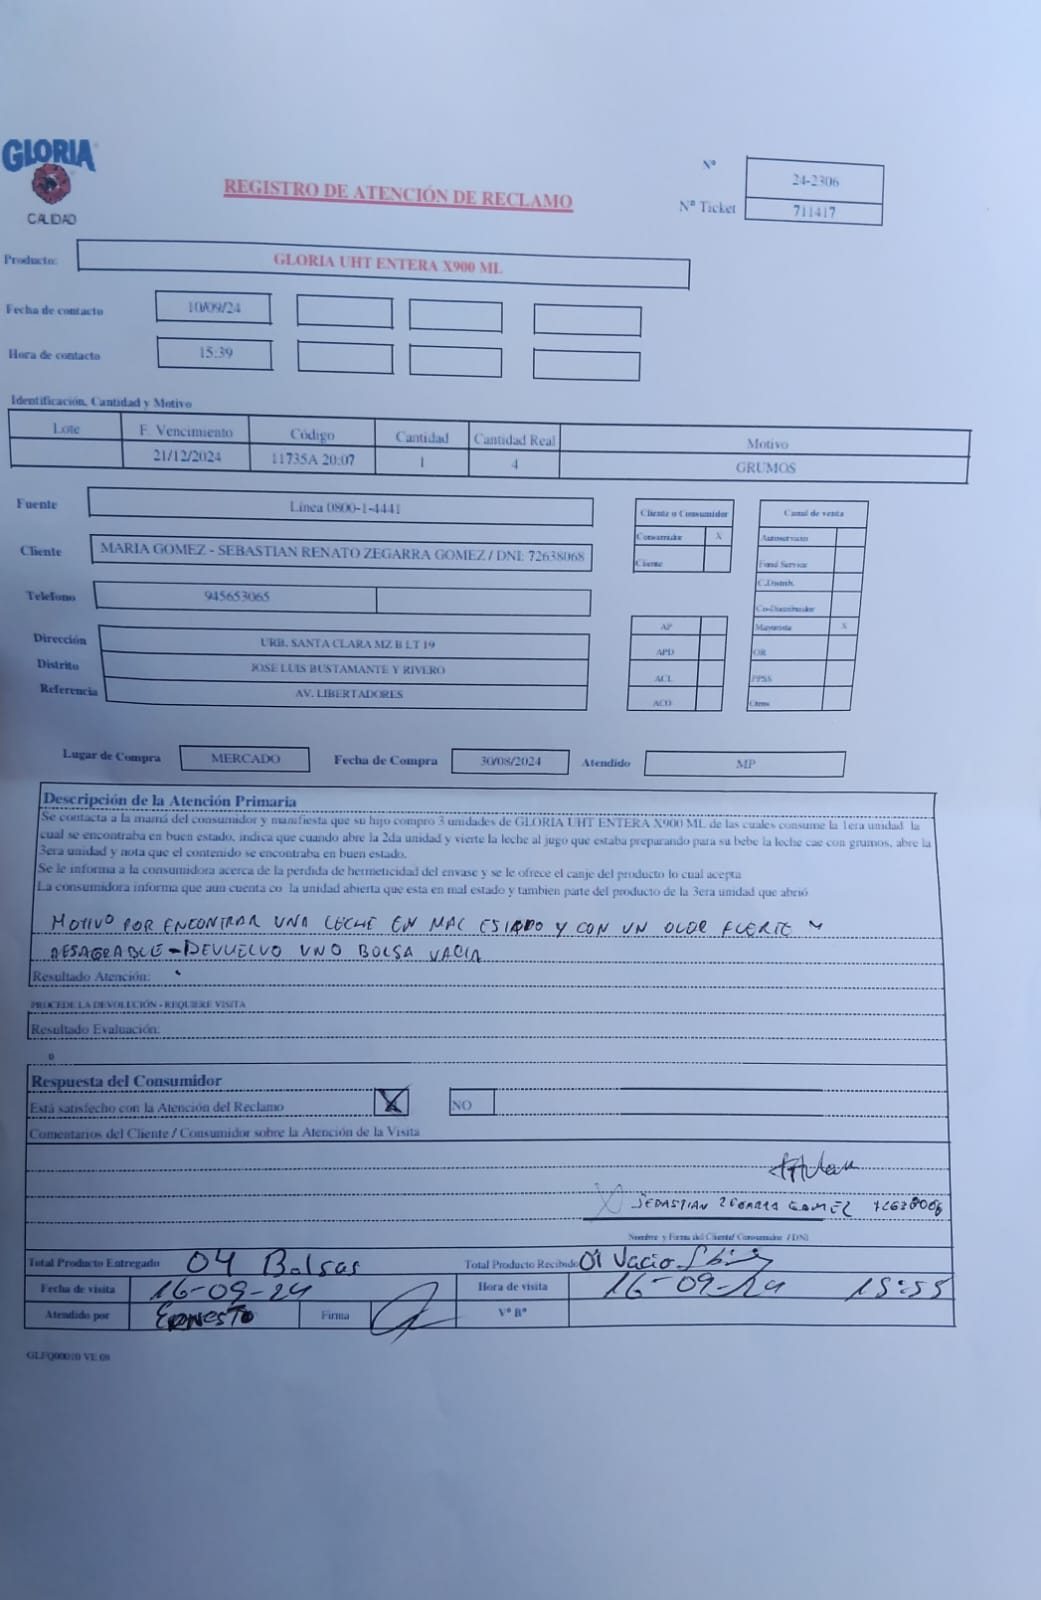 GLORIA
CALIDAD
REGISTRO DE ATENCIÓN DE RECLAMO
Nº 24-2306
Nº Ticket 711417
Producto: GLORIA UHT ENTERA X900 ML
Fecha de contacto 10/09/24
Hora de contacto 15:39
Identificación, Cantidad y Motivo
Lote F. Vencimiento Código Cantidad Cantidad Real Motivo
21/12/2024 11735A 20:07 1 4 GRUMOS
Fuente Línea 0800-1-4441
Cliente MARIA GOMEZ - SEBASTIAN RENATO ZEGARRA GOMEZ / DNI: 72638068
Telefono 945653065
Dirección URB. SANTA CLARA MZ B LT 19
Distrito JOSE LUIS BUSTAMANTE Y RIVERO
Referencia AV. LIBERTADORES
Cliente o Consumidor
Consumidor X
Cliente
AP
APD
ACL
ACO
Canal de venta
Autoservicio
Food Service
C.Distrib.
Co-Distribuidor
Mayorista X
OR
PPSS
Otros
Lugar de Compra MERCADO Fecha de Compra 30/08/2024 Atendido MP
Descripción de la Atención Primaria
Se contacta a la mamá del consumidor y manifiesta que su hijo compro 3 unidades de GLORIA UHT ENTERA X900 ML de las cuales consume la 1era unidad la
cual se encontraba en buen estado, indica que cuando abre la 2da unidad y vierte la leche al jugo que estaba preparando para su bebe la leche cae con grumos, abre la
3era unidad y nota que el contenido se encontraba en buen estado.
Se le informa a la consumidora acerca de la perdida de hermeticidad del envase y se le ofrece el canje del producto lo cual acepta
La consumidora informa que aun cuenta co la unidad abierta que esta en mal estado y tambien parte del producto de la 3era unidad que abrió
MOTIVO POR ENCONTRAR UNA LECHE EN MAL ESTADO Y CON UN OLOR FUERTE Y
DESAGRADABLE - DEVUELVO UNO BOLSA VACIA
Resultado Atención:
PROCEDE LA DEVOLUCIÓN - REQUIERE VISITA
Resultado Evaluación:
0
Respuesta del Consumidor
Está satisfecho con la Atención del Reclamo X NO
Comentarios del Cliente / Consumidor sobre la Atención de la Visita
SEBASTIAN ZEGARRA GOMEZ
Nombre y Firma del Cliente/ Consumidor / DNI
Total Producto Entregado 04 Bolsas Total Producto Recibido 01 Vacio
Fecha de visita 16-09-24 Hora de visita 16-09-24 15:55
Atendido por Ernesto Firma Vº Bº
GLFQ00010 VE 08